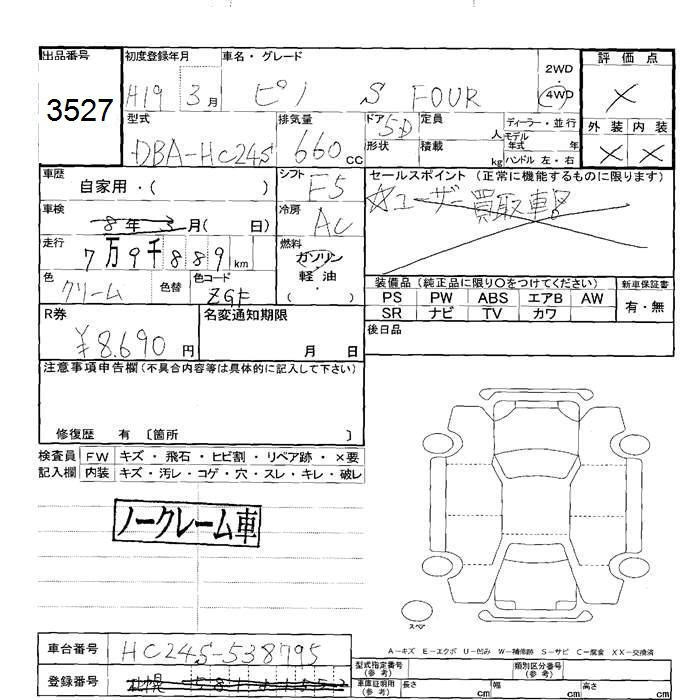 出品番号 初度登録年月 車名・グレード 2WD 評価点
3527 H19 3月 ピノ S FOUR 4WD ×
型式 排気量 ドア 定員 ディーラー・並行 外装 内装
DBA-HC24S 660 CC 5D 人 モデル年式 年 × ×
形状 積載 kg ハンドル 左・右
車歴 自家用・( ) シフト F5 セールスポイント (正常に機能するものに限ります)
☆ユーザー買取車
車検 8年 3月( 日) 冷房 AC
走行 7万9千889km 燃料 ガソリン
軽油
( )
色 クリーム 色替 色コード ZGF
装備品 (純正品に限り○をつけてください) 新車保証書
PS PW ABS エアB AW 有・無
SR ナビ TV カワ
R券 名変通知期限 後日品
¥8.690円 月 日
注意事項申告欄 (不具合内容等は具体的に記入して下さい)
修復歴 有 〔箇所 〕
検査員 FW キズ・飛石・ヒビ割・リペア跡・×要
記入欄 内装 キズ・汚レ・コゲ・穴・スレ・キレ・破レ
ノークレーム車
スペア
A-キズ E-エクボ U-凹み W-補修跡 S-サビ C-腐食 XX-交換済
車台番号 HC24S-538795
型式指定番号(参考) 類別区分番号(参考)
登録番号 札幌
車庫証明用(参考) 長さ cm 幅 cm 高さ cm